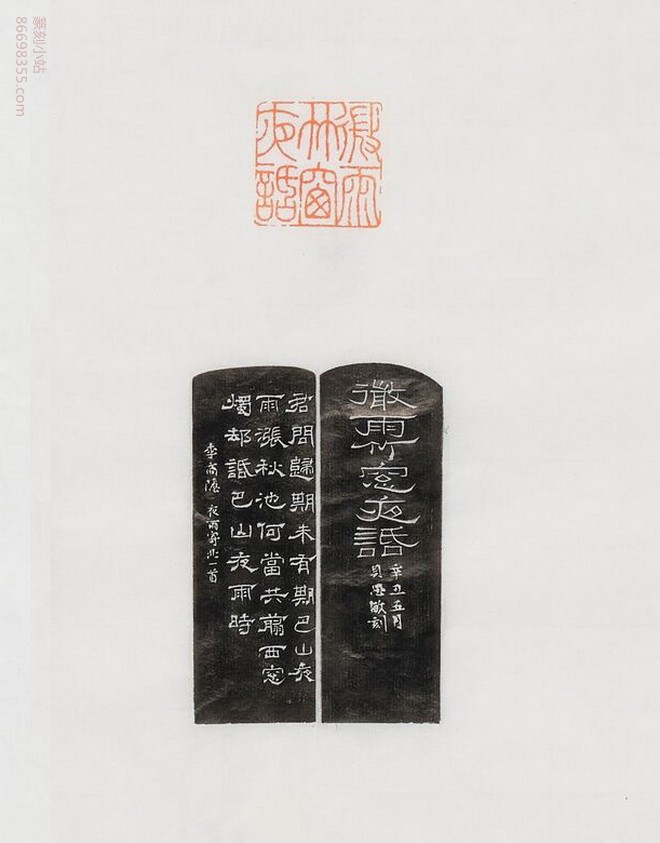 篆刻小站
86698355.com
微雨
竹窗
夜話
微雨竹窓夜話
辛丑五月
刻
君問歸期未有期巴山夜
雨漲秋池何當共翦西窓
燭却話巴山夜雨時
李商隱夜雨寄北一首